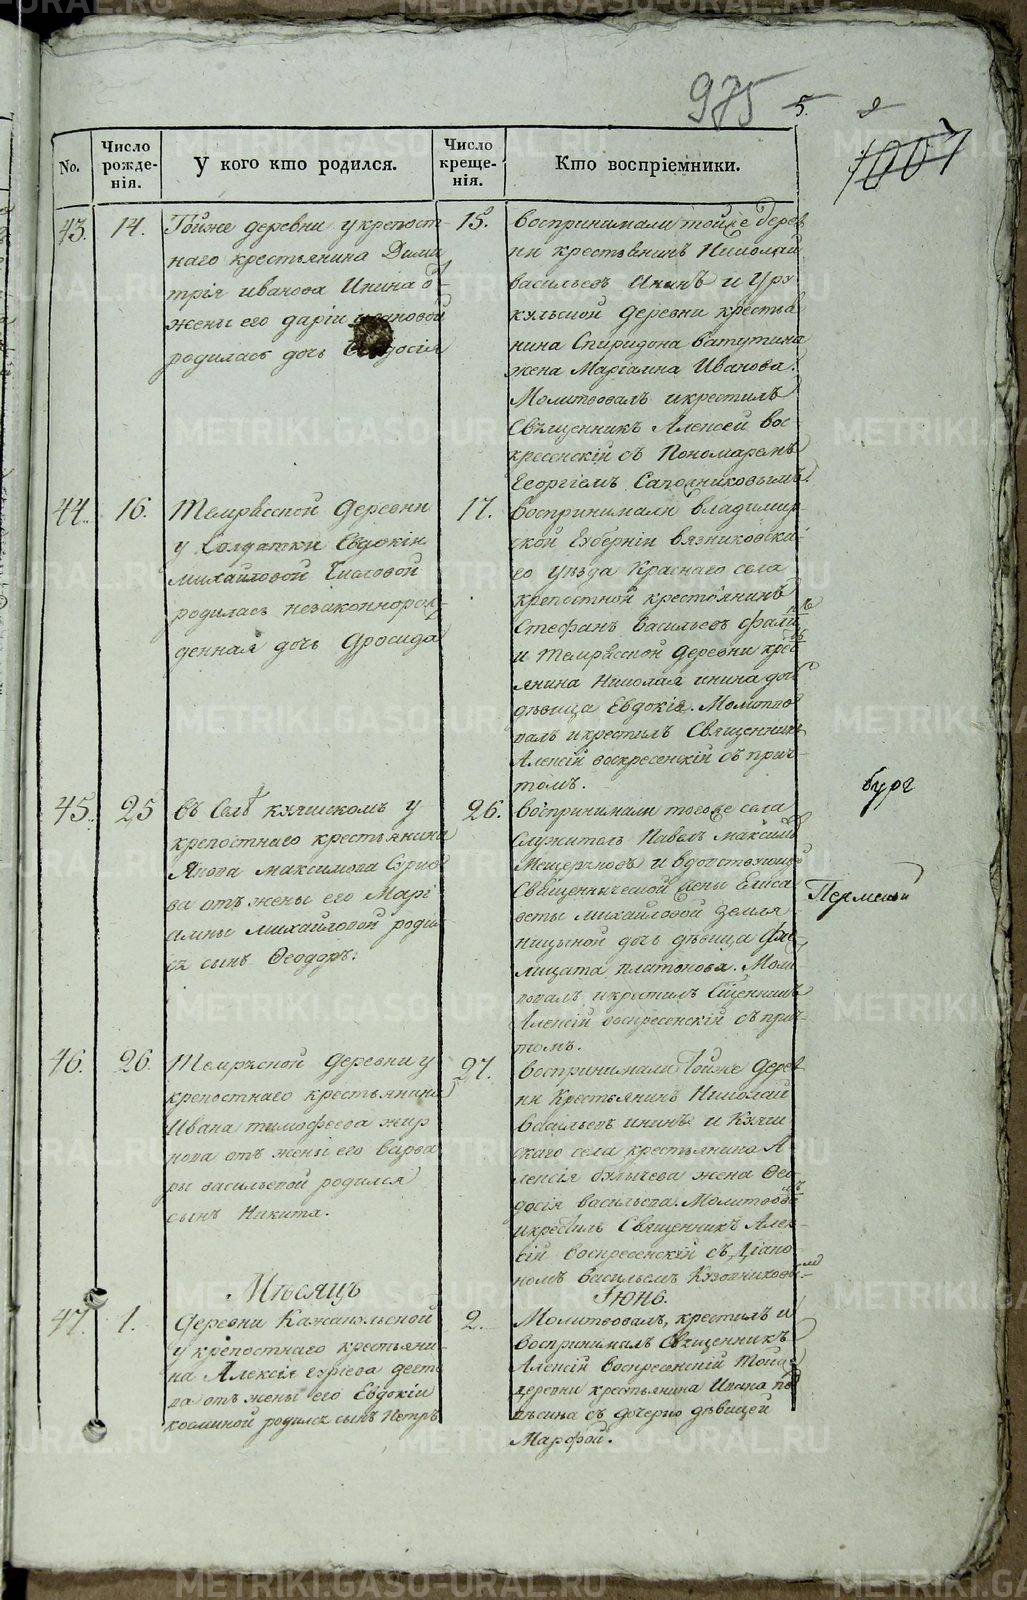 975
5.
1007
No.
Число
рожде-
нія.
У кого кто родился.
Число
креще-
нія.
Кто воспріемники.
43.
14.
Тойже деревни у крепост-
наго крестьянина Дими
трія иванова Инина о
жены его даріи ивановой
родилась дочь Ѳеодосія
15.
воспринимали тойже дерев
ни крестьянинъ Николай
васильевъ Ининъ и Уру
кульской деревни крестья
нина Спиридона Ватутина
жена Маріамна Иванова.
Молитвовалъ и крестилъ
Священникъ Алексей вос
кресенскій съ Пономаремъ
Георгіемъ Сапожниковымъ.
44.
16.
Темрясской деревни
у Солдатки Евдокіи
михайловой
родилась незаконнорож
денная дочь Дросида
17.
воспринимали владимир
ской Губерніи вязниковска
го уезда Краснаго села
крепостной крестьянинъ
Стефанъ васильевъ
и темрясской деревни крес
янина Николая инина доч
девица Евдокія. Молитво
валъ и крестилъ Священникъ
Алексій воскресенскій съ прич
томъ.
45.
25
въ Селѣ куяшскомъ у
крепостнаго крестьянина
Якова максимова
ва отъ жены его Марі
амны михайловой роди
ся сынъ Ѳеодоръ.
26.
воспринимали тогоже села
Служитель Павелъ Максимо
Мещеряковъ и вдовствующей
Священнической жены Елиса
веты михайловой Земля
ницыной дочь девица Фе
лицата платонова. Моли
вовалъ и крестилъ Священникъ
Алексій воскресенскій съ прич
томъ.
бург
Пермской
46.
26.
Темряской деревни у
крепостнаго крестьянина
Ивана тимофеева жир
нова отъ жены его варва
ры васильевой родился
сынъ Никита.
27.
воспринимали тойже дерев
ни Крестьянинъ Николай
васильевъ ининъ и Куяш
скаго села крестьянина А
лексія булычева жена Ѳео
досія васильева. Молитвова
и крестилъ Священникъ Алек-
сій воскресенскій съ Діако-
номъ васильемъ
Мѣсяцъ
Іюнь.
47.
1.
деревни Кажакульской
у крепостнаго крестьяни-
на Алексія
ва отъ жены его Евдокіи
косминой родился сынъ Петръ
2.
Молитвовалъ, крестилъ и
воспринималъ Священникъ
Алексій воскресенскій тойже
деревни крестьянина Ивана
съ дочерью девицей
Марфой.